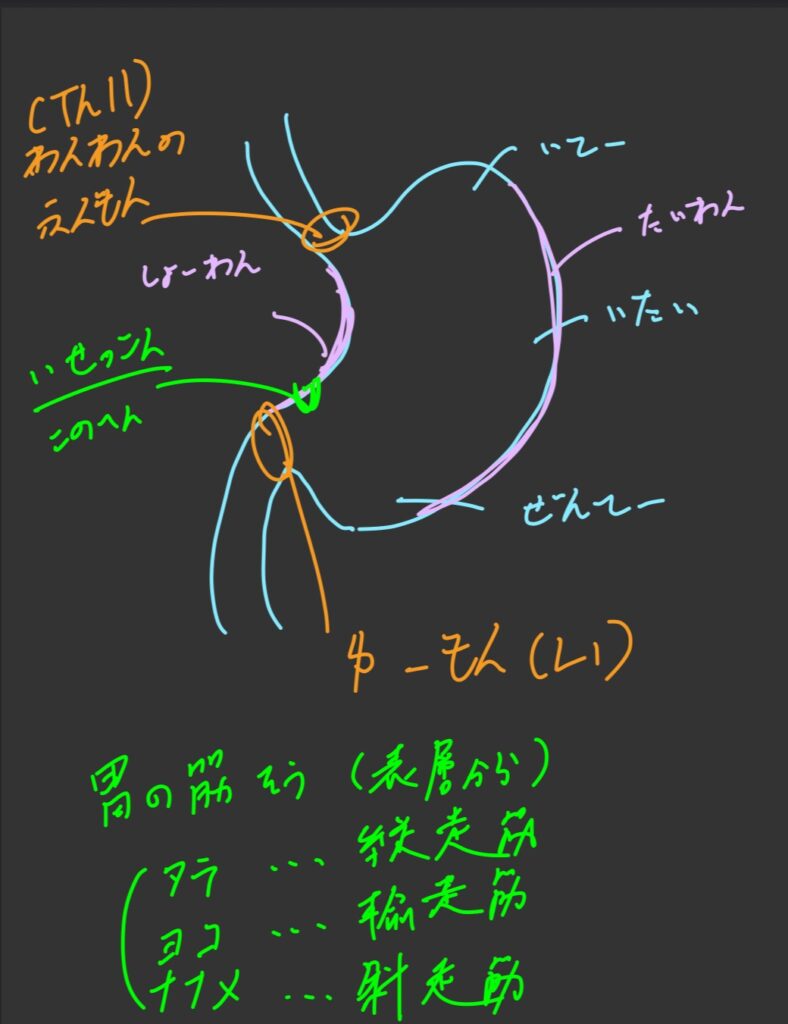 (Th11)
わんわんの
ふんもん
いてー
たいわん
しょーわん
いたい
いせっこん
このへん
ぜんてー
ゆーもん(L1)
胃の筋そう(表層から)
タテ…縦走筋
ヨコ…輪走筋
ナナメ…斜走筋